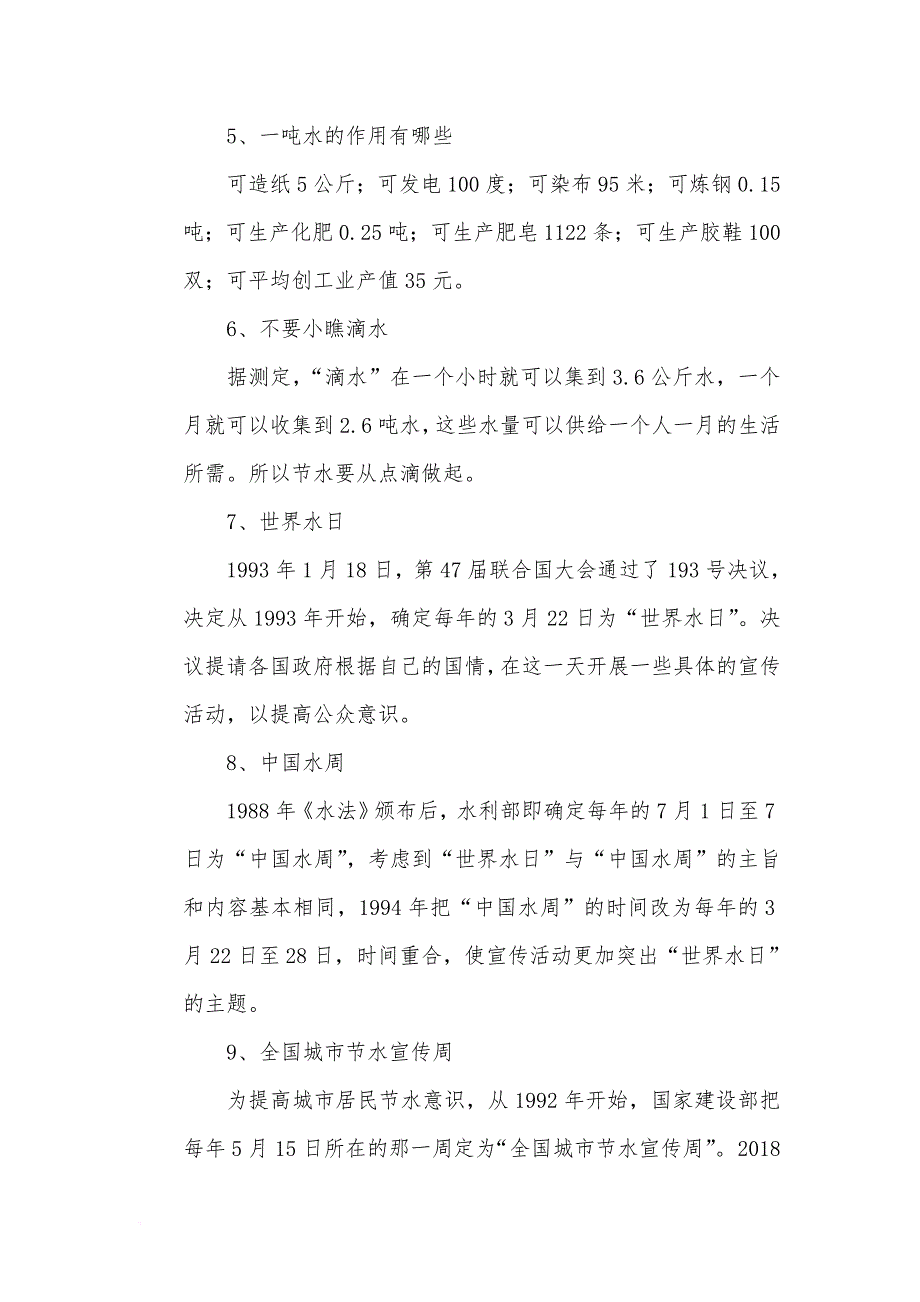 5、一吨水的作用有哪些
可造纸5公斤；可发电100度；可染布95米；可炼钢0.15
吨；可生产化肥0.25吨；可生产肥皂1122条；可生产胶鞋100
双；可平均创工业产值35元。
6、不要小瞧滴水
据测定，“滴水”在一个小时就可以集到3.6公斤水，一个
月就可以收集到2.6吨水，这些水量可以供给一个人一月的生活
所需。所以节水要从点滴做起。
7、世界水日
1993年1月18日，第47届联合国大会通过了193号决议，
决定从1993年开始，确定每年的3月22日为“世界水日”。决
议提请各国政府根据自己的国情，在这一天开展一些具体的宣传
活动，以提高公众意识。
8、中国水周
1988年《水法》颁布后，水利部即确定每年的7月1日至7
日为“中国水周”，考虑到“世界水日”与“中国水周”的主旨
和内容基本相同，1994年把“中国水周”的时间改为每年的3
月22日至28日，时间重合，使宣传活动更加突出“世界水日”
的主题。
9、全国城市节水宣传周
为提高城市居民节水意识，从1992年开始，国家建设部把
每年5月15日所在的那一周定为“全国城市节水宣传周”。2018